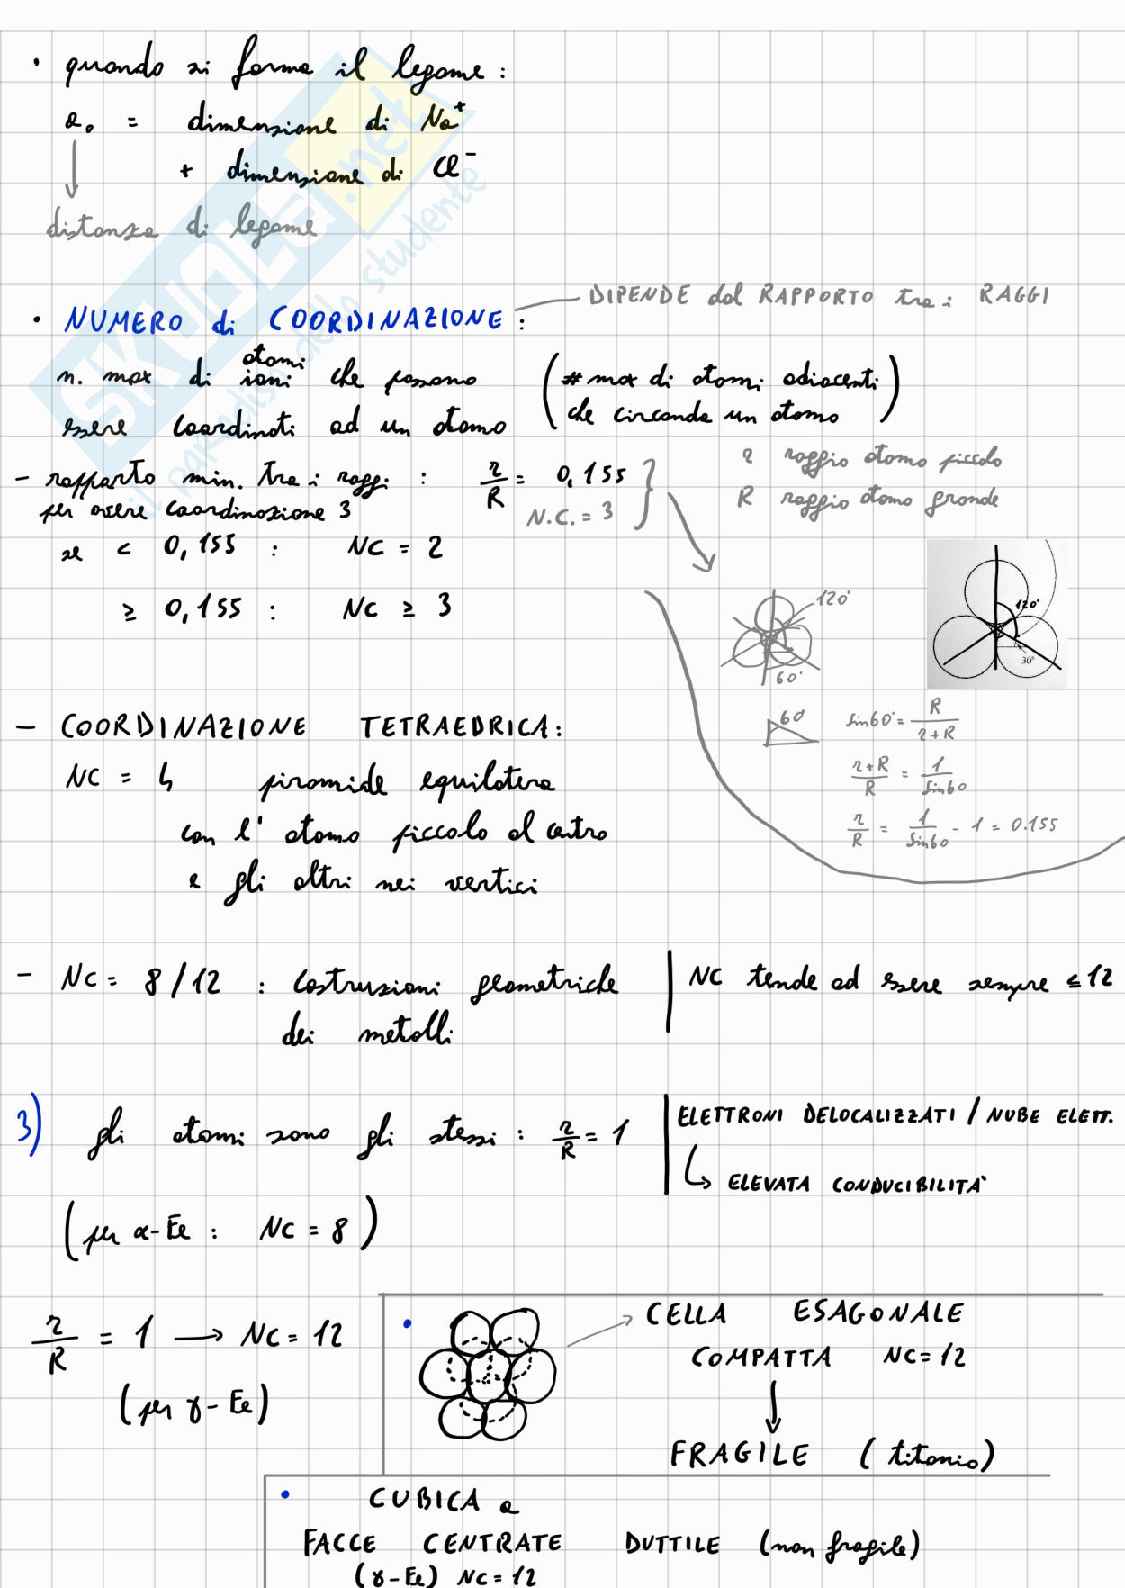 • quando si forma il legame :
a₀ = dimensione di Na⁺
+ dimensione di Cl⁻
distanza di legame
SKUOLA.net
il paradiso dello studente
DIPENDE dal RAPPORTO tra i RAGGI
• NUMERO di COORDINAZIONE :
atomi
n. max di ioni che possono
essere coordinati ad un atomo
( # max di atomi adiacenti
che circonda un atomo )
r raggio atomo piccolo
R raggio atomo grande
- rapporto min. tra i raggi : r/R = 0,155
per avere coordinazione 3
N.C. = 3
se < 0,155 : NC = 2
≥ 0,155 : NC ≥ 3
120°
60°
120°
30°
60°
sin60° = R/(r+R)
(r+R)/R = 1/sin60
r/R = 1/sin60 - 1 = 0.155
- COORDINAZIONE TETRAEDRICA:
NC = 4 piramide equilatera
con l' atomo piccolo al centro
e gli altri nei vertici
- NC = 8/12 : costruzioni geometriche
dei metalli
NC tende ad essere sempre ≤ 12
3) gli atomi sono gli stessi : r/R = 1
ELETTRONI DELOCALIZZATI / NUBE ELETT.
↳ ELEVATA CONDUCIBILITÀ
(per α-Fe : NC = 8)
r/R = 1 → NC = 12
(per γ-Fe)
• CELLA ESAGONALE
COMPATTA NC=12
FRAGILE (titanio)
• CUBICA a
FACCE CENTRATE DUTTILE (non fragile)
(γ-Fe) NC = 12